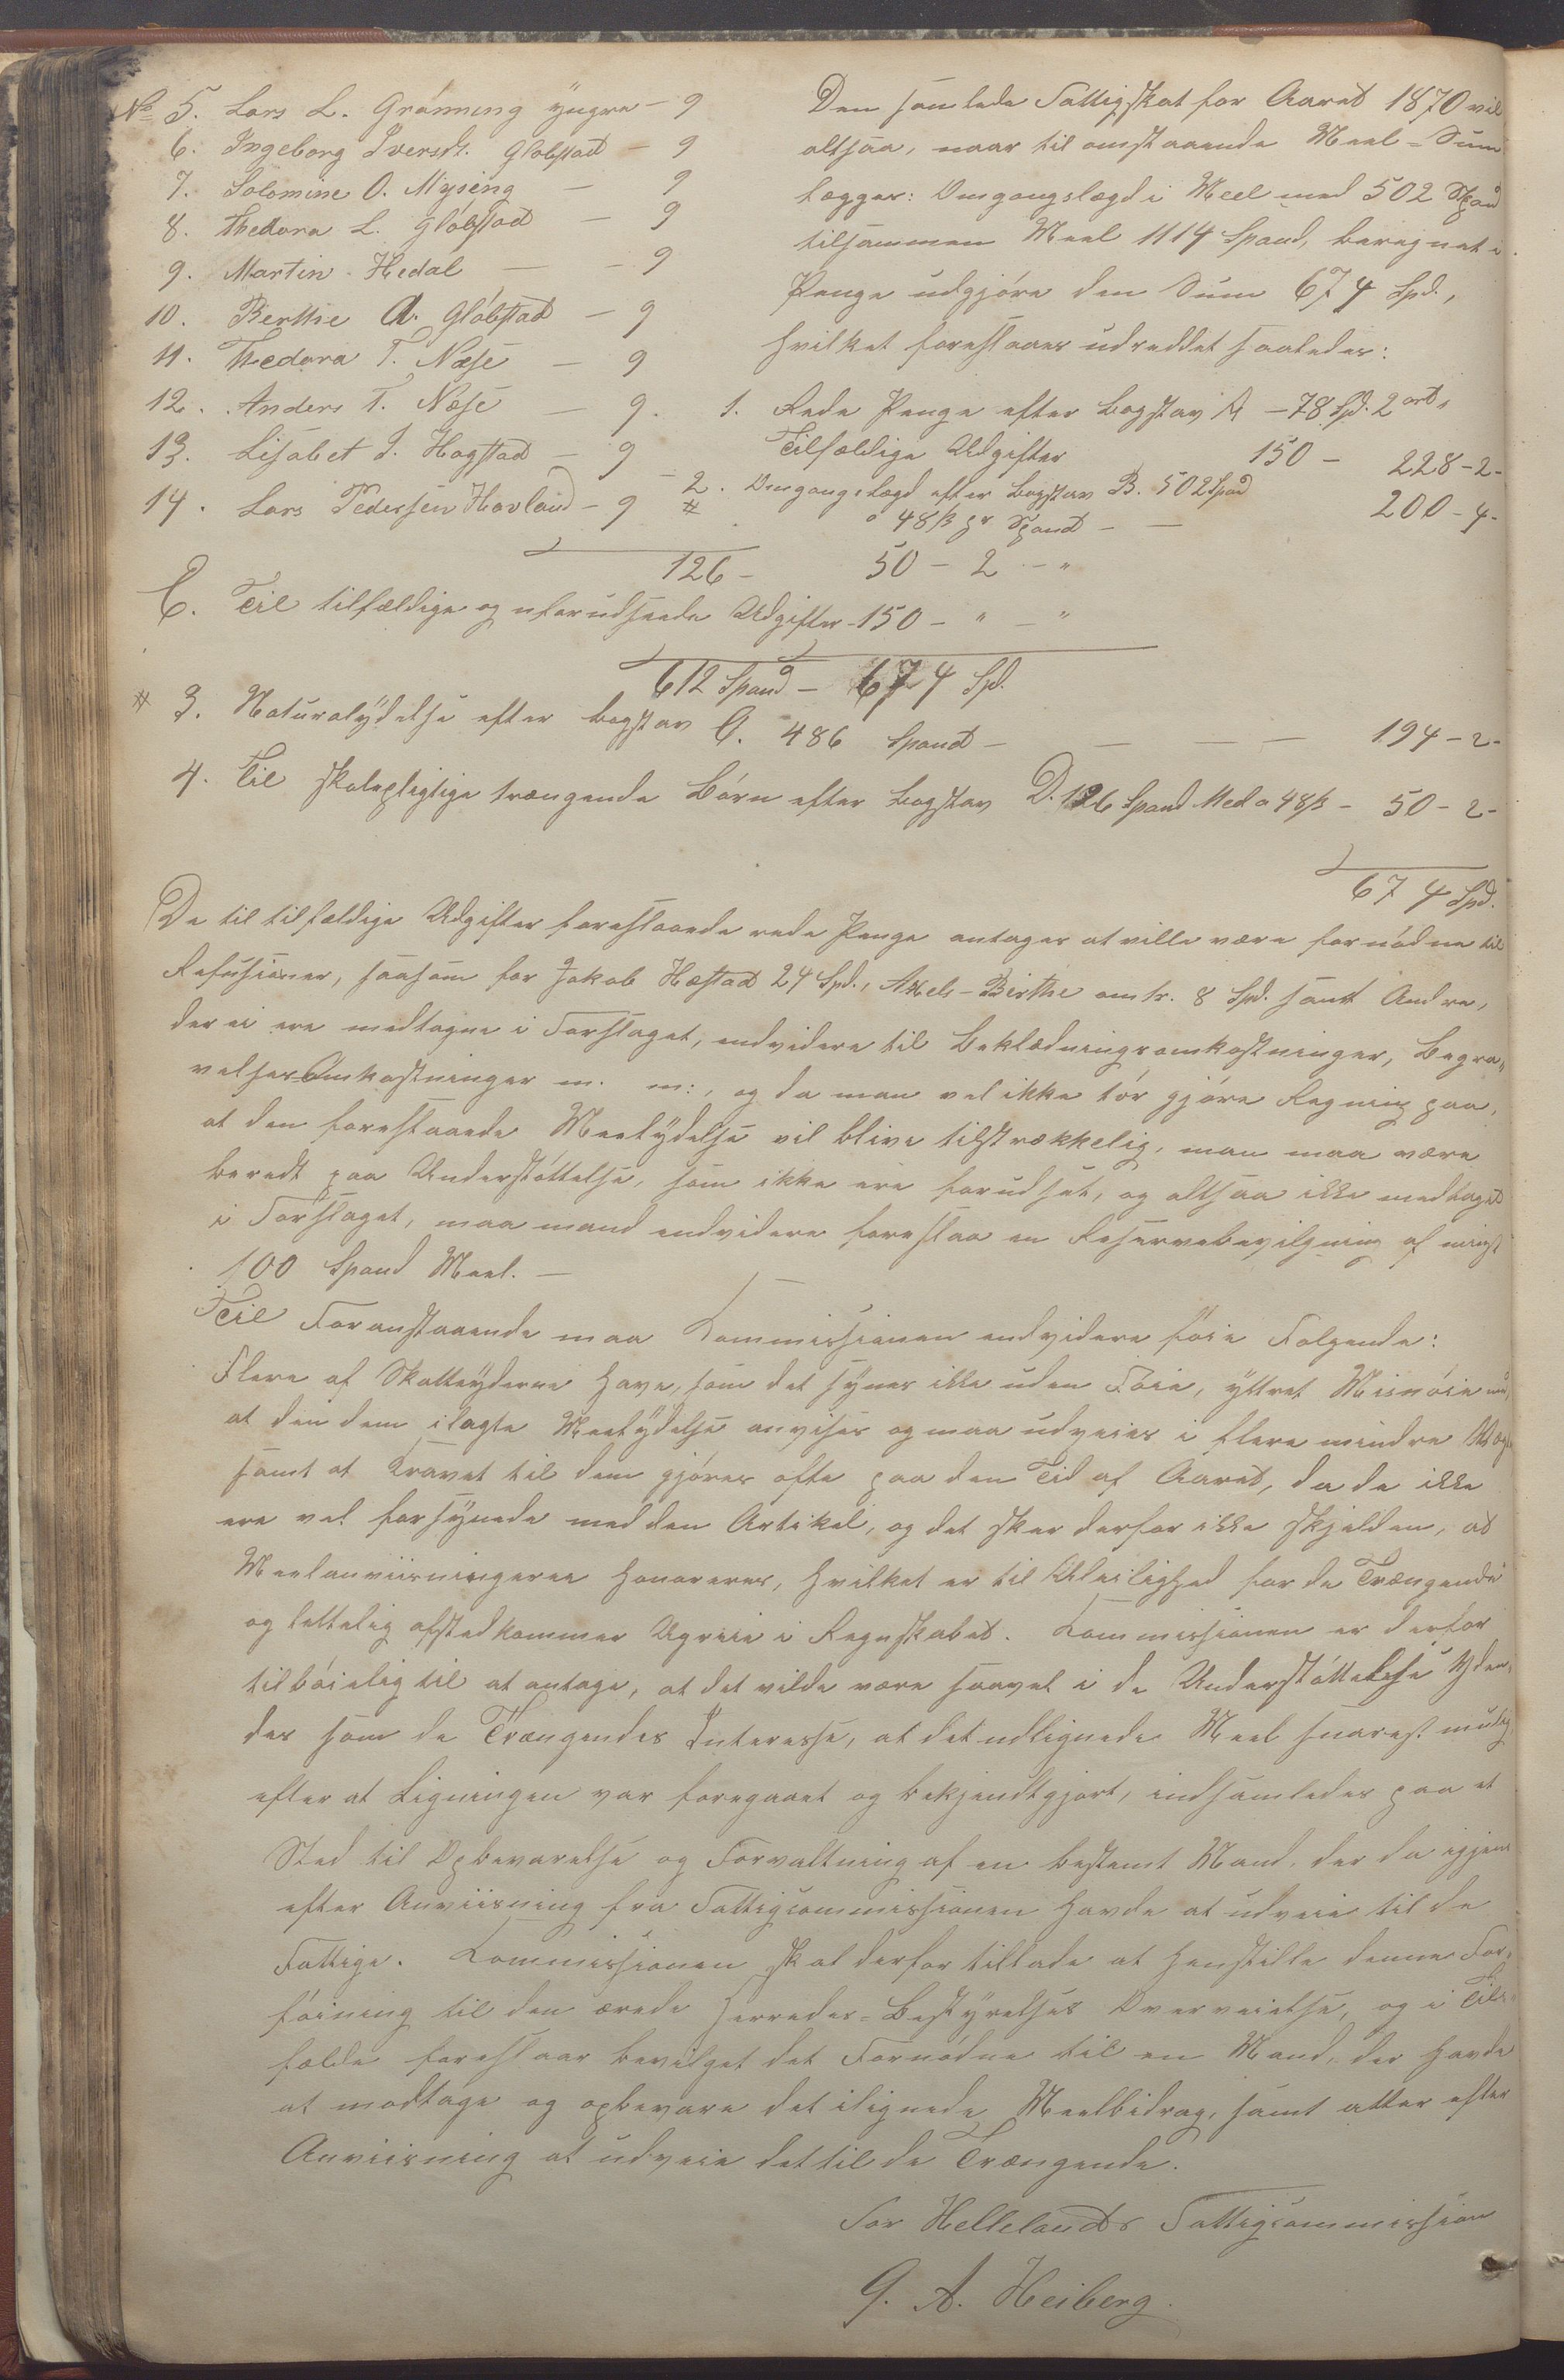 No 5. Lars L. Grønning yngre - 9
6. Ingeborg Iversdr. Gløbstad - 9
7. Solomine O. Mysing - 9
8. Thedora L. Gløbstad - 9
9. Martin Hedal - - 9
10. Berthe A. Gløbstad - 9
11. Thedora T. Næse - 9
12. Anders T. Næse - 9.
13. Lisabet J. Hogstad - 9
14. Lars Pedersen Havland - 9
126 - 50 - 2 - "
E. Til tilfældige og uforudseede Udgifter - 150 - " - "
612 Spand - 674 Spd.
Den samlede Fattigskat for Aaret 1870 vil
altsaa, naar til omstaaende Meel-Sum
lægges: Omgangslægd i Meel med 502 Spand
tilsammen Meel 1114 Spand, beregnet i
Penge udgjøre den Sum 674 Spd.,
hvilket foreslaaes udreddet saaledes:
1. Rede Penge efter Bogstav A - 78 Spd. 2 ort.
Tilfældige Udgifter 150 - 228 - 2 -
2. Omgangslægd efter Bogstav B. 502 Spand
a 48 ß pr Spand - - 200 - 4 -
# 3. Naturalydelse efter Bogstav C. 486 Spand - - - - 194 - 2 -
4. Til skolepligtige trængende Børn efter Bogstav D. 126 Spand Meel a 48 ß - 50 - 2 -
674 Spd.
De til tilfældige Udgifter foreslaaede rede Penge antages at ville være fornødne til
Refusioner, saasom for Jakob Hæstad 24 Spd., Axels-Birthe omtr. 8 Spd. samt Andre,
der ei ere medtagne i Forslaget, endvidere til Beklædningsomkostninger, Begra-
velses Omkostninger m. m., og da man vel ikke tør gjøre Regning paa,
at den foreslaaede Meelydelse vil blive tilstrækkelig, man maa være
beredt paa Understøttelse, som ikke ere forudset, og altsaa ikke medtaget
i Forslaget, maa mand endvidere foreslaa en Reservebevilgning af mindst
100 Spand Meel. -
Til Foranstaaende maa Kommissionen endvidere føie Følgende:
Flere af Skatteyderne have, som det synes ikke uden Føie, yttret Misnøie med,
at den dem ilagte Meelydelse anvises og maa udveies i flere mindre
samt at Kravet til dem gjøres ofte paa den Tid af Aaret, da de ikke
ere vel forsynede med den Artikel, og det sker derfor ikke skjelden, at
Meelanviisningerne honoreres, hvilket er til Uleilighed for de Trængende
og lettelig afstedkommer Ugreie i Regnskabet. Kommissionen er derfor
tilbøielig til at antage, at det vilde være saavel i de Understøttelse Yden-
des som de Trængendes Interesse, at det udlignede Meel snarest mulig,
efter at Ligningen var foregaaet og bekjendtgjort, indsamledes paa et
Sted til Opbevarelse og Forvaltning af en bestemt Mand, der da igjen
efter Anviisning fra Fattigcommissionen havde at udveie til de
Fattige. Kommissionen skal derfor tillade at henstille denne For-
føining til den ærede Herreds-Bestyrelses Overveielse, og i Til-
fælde foreslaar bevilget det Fornødne til en Mand, der havde
at modtage og opbevare det ilignede Meelbidrag, samt atter efter
Anviisning at udveie det til de Trængende.
For Hellelands Fattigcommission
G. A. Heiberg.